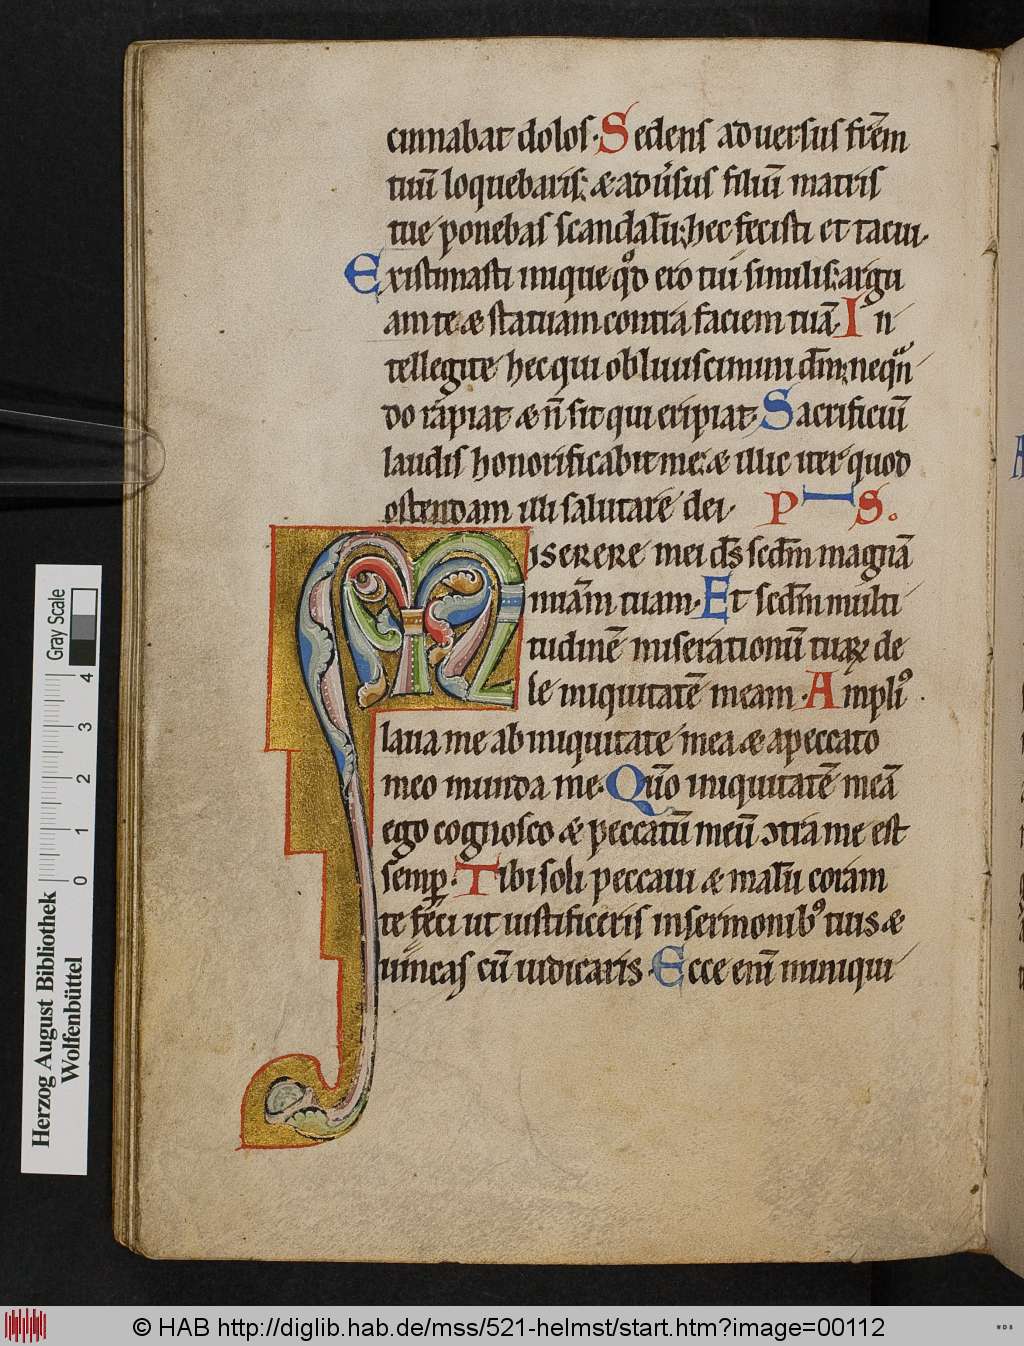 cinnabat dolos. Sedens aduersus frēm
tuū loquebaris; & adūsus filiū matris
tue ponebas scandalū; hec fecisti et tacui.
Existimasti inique qđ ero tui similis; argu
am te & statuam contra faciem tuā. In
tellegite hec qui obliuiscimini dm̄; neqn̄
do rapiat & n̄ sit qui eripiat. Sacrificiū
laudis honorificabit me; & illic iter quod
ostendam illi salutare dei. PS.
Miserere mei ds̄ scdm̄ magnā
miām tuam. Et scdm̄ multi
tudinē miserationū tuaꝝ de
le iniquitatē meam. Ampliꝰ
laua me ab iniquitate mea & a peccato
meo munda me. Qūo iniquitatē meā
ego cognosco & peccatū meū ꝯtra me est
semꝑ. Tibi soli peccaui & malū coram
te feci ut iustificeris in sermonibꝰ tuis &
uincas cū iudicaris. Ecce eni̅ in iniqui
Gray Scale
0 1 2 3 4
Herzog August Bibliothek
Wolfenbüttel
© HAB http://diglib.hab.de/mss/521-helmst/start.htm?image=00112